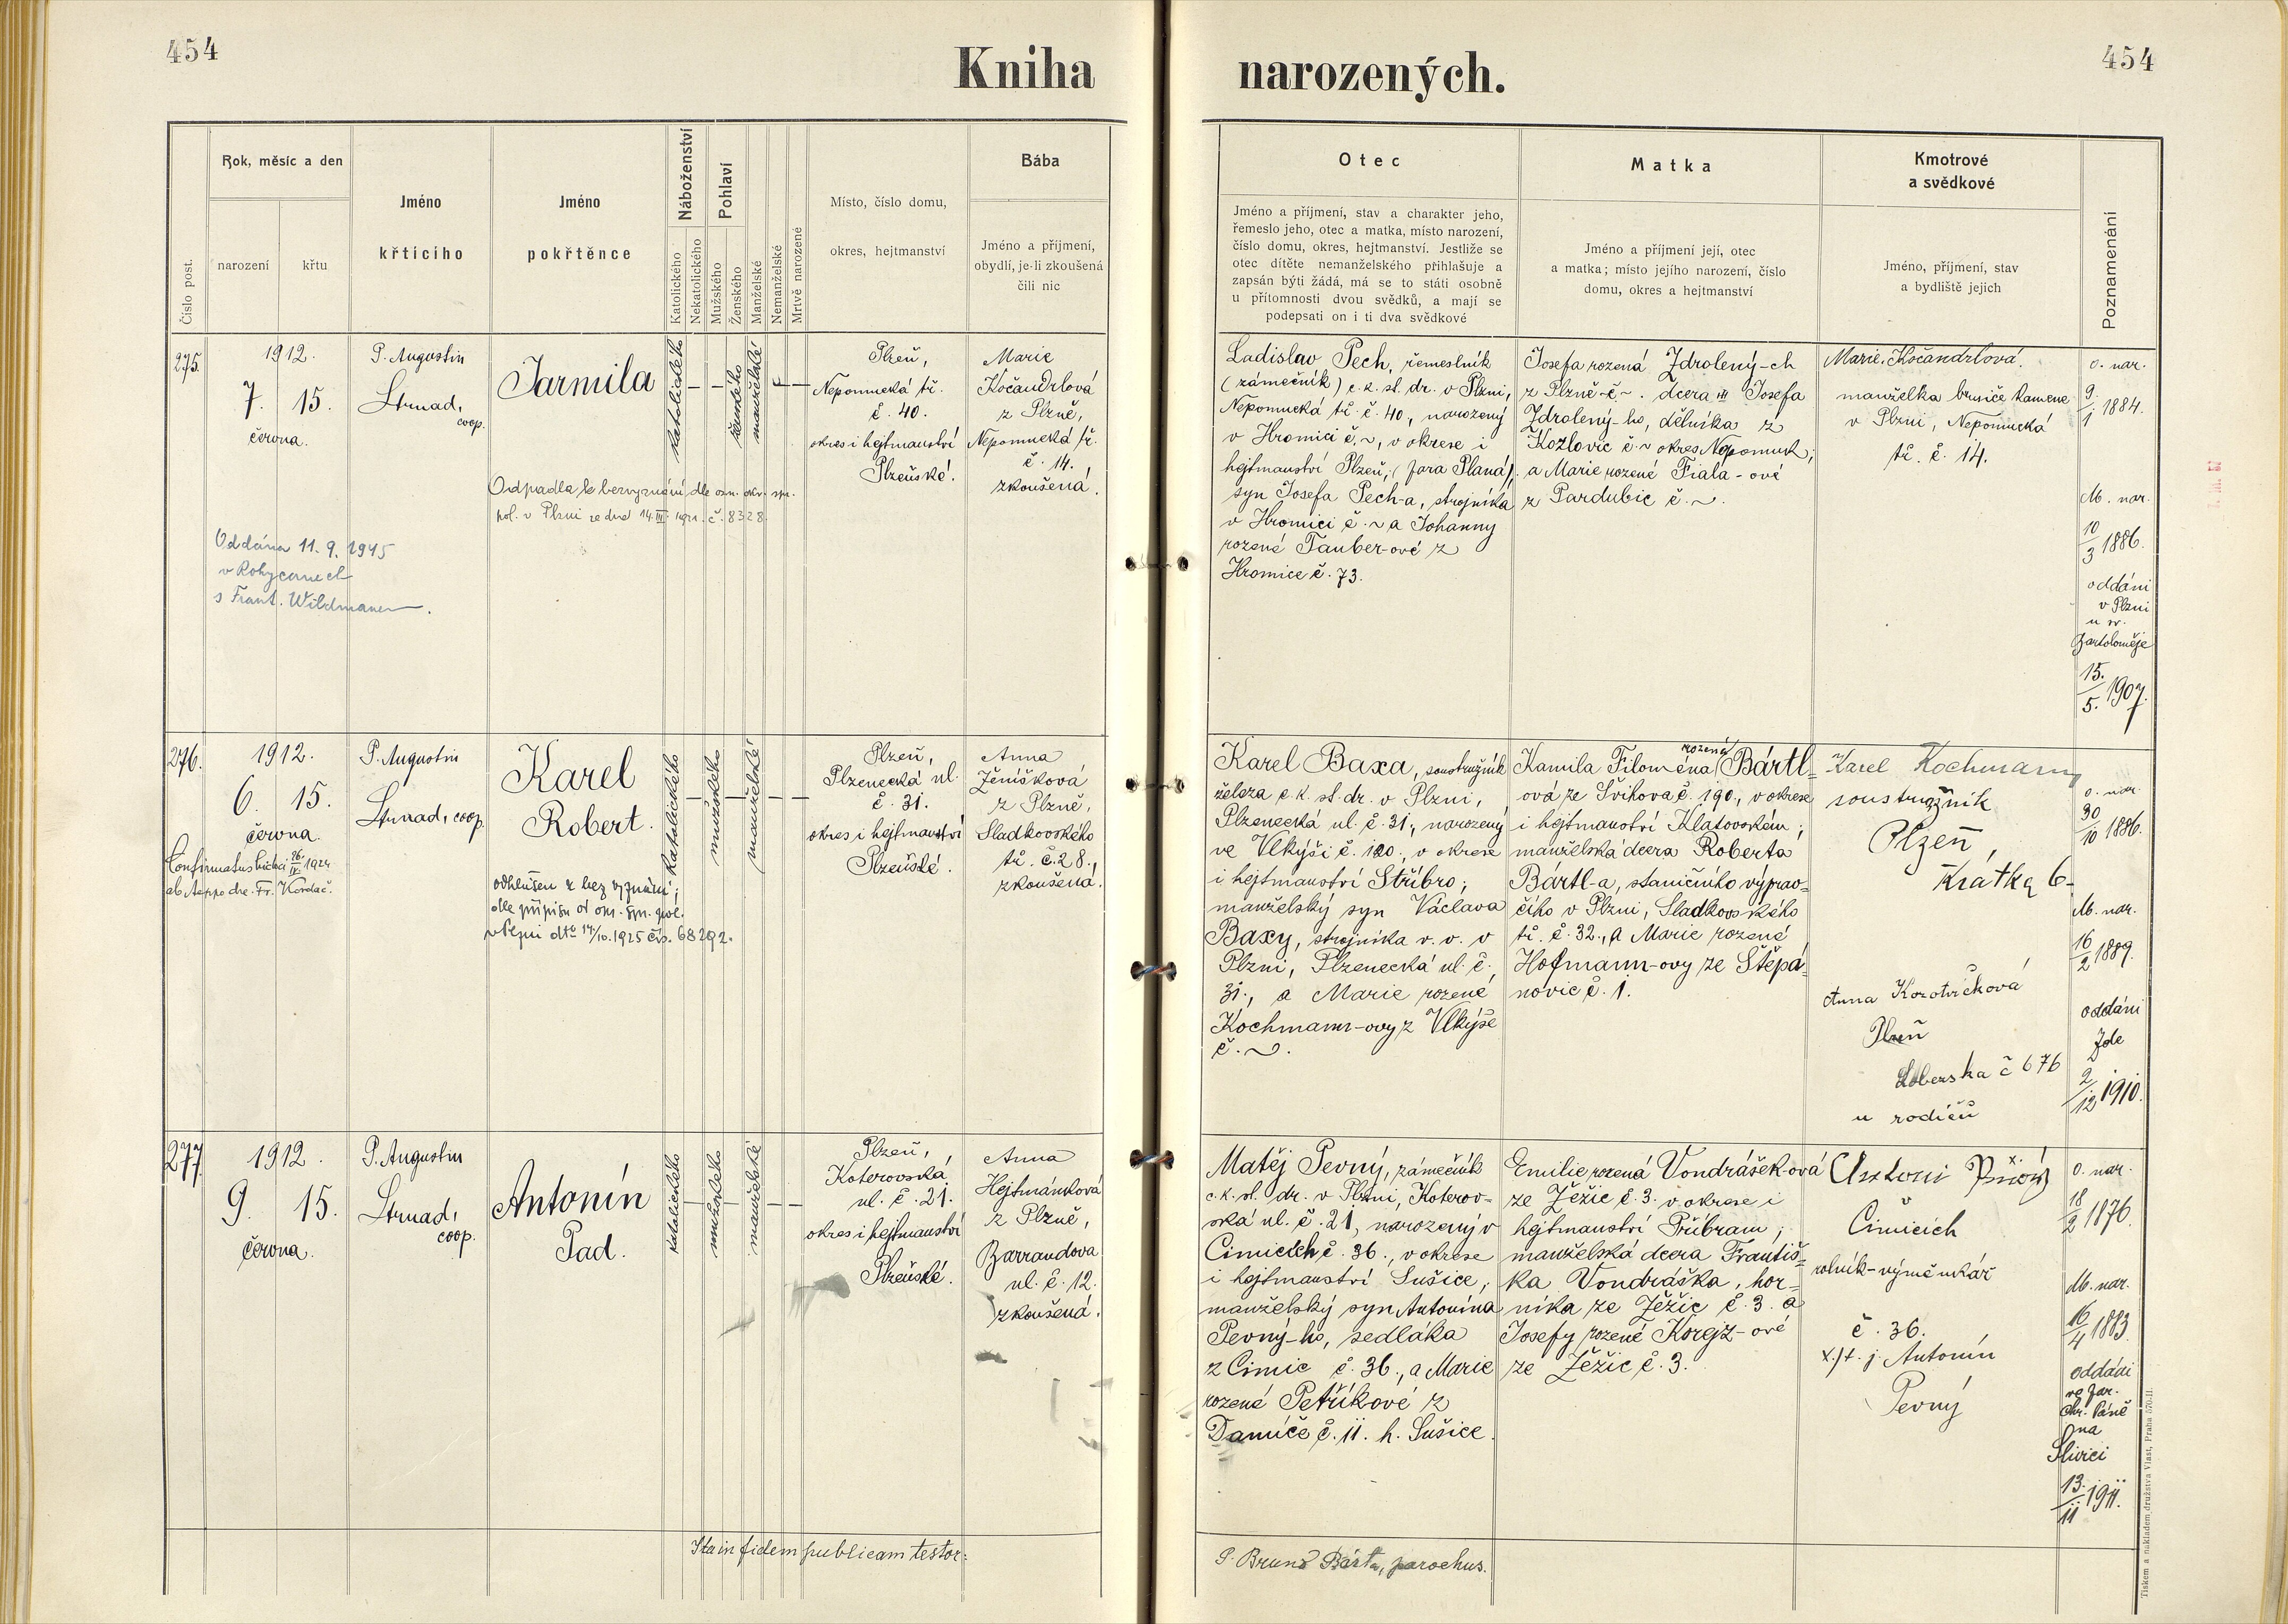 454
454
Kniha narozených.
Číslo post.
Rok, měsíc a den
narození
křtu
Jméno
křticího
Jméno
pokřtěnce
Náboženství
Katolického
Nekatolického
Pohlaví
Mužského
Ženského
Manželské
Nemanželské
Mrtvě narozené
Místo, číslo domu,
okres, hejtmanství
Bába
Jméno a příjmení,
obydlí, je-li zkoušená
čili nic
Otec
Jméno a příjmení, stav a charakter jeho,
řemeslo jeho, otec a matka, místo narození,
číslo domu, okres, hejtmanství. Jestliže se
otec dítěte nemanželského přihlašuje a
zapsán býti žádá, má se to státi osobně
u přítomnosti dvou svědků, a mají se
podepsati on i ti dva svědkové
Matka
Jméno a příjmení její, otec
a matka; místo jejího narození, číslo
domu, okres a hejtmanství
Kmotrové
a svědkové
Jméno, příjmení, stav
a bydliště jejich
Poznamenání
275.
1912.
7. 15.
června.
Oddána 11. 9. 1945
v Rokycanech
s Frant. Wildmanem.
P. Augustin
Strnad,
coop.
Jarmila
Odpadla k bezvyznání dle ozn. okr. spr.
pol. v Plzni ze dne 14. III. 1921. č. 8328.
katolického
ženského
manželské
Plzeň,
Nepomucká tř.
č. 40.
okres i hejtmanství
Plzeňské.
Marie
Kočandrlová
z Plzně,
Nepomucká tř.
č. 14.
zkoušená.
Ladislav Pech, řemeslník
(zámečník) c. k. st. dr. v Plzni,
Nepomucká tř. č. 40, narozený
v Hromici č. ~, v okrese i
hejtmanství Plzeň, (fara Planá),
syn Josefa Pech-a, strojníka
v Hromici č. ~ a Johanny
rozené Tauber-ové z
Hromice č. 73.
Josefa rozená Zdrolený-ch
z Plzně č. ~. dcera Josefa
Zdrolený-ho, dělníka z
Kozlovic č. ~ okres Nepomuk;
a Marie rozené Fiala-ové
z Pardubic č. ~.
Marie Kočandrlová.
manželka brusiče kamene
v Plzni, Nepomucká
tř. č. 14.
o. nar.
9./1 1884.
M. nar.
10/3 1886.
oddáni
v Plzni
u sv.
Bartoloměje
15./5. 1907.
276.
1912.
6. 15.
června.
P. Augustin
Strnad, coop.
Karel
Robert.
odhlášen z bez vyznání;
dle přípisu od om. spr. pol.
v Plzni dto 14/10. 1925 čís. 68292.
Katolického
mužského
manželské
Plzeň,
Plzenecká ul.
č. 31.
okres i hejtmanství
Plzeňské.
Anna
Ženíšková
z Plzně,
Sladkovského
tř. č. 28.,
zkoušená.
Karel Baxa, soustružník
železa c. k. st. dr. v Plzni,
Plzenecká ul. č. 31., narozený
ve Vlkýši č. 120., v okrese
i hejtmanství Stříbro;
manželský syn Václava
Baxy, strojníka v. v. v
Plzni, Plzenecká ul. č.
31., a Marie rozené
Kochmann-ovy z Vlkýše
č. ~.
Kamila Filoména rozená Bártl-
ová ze Švihova č. 190., v okrese
i hejtmanství Klatovském;
manželská dcera Roberta
Bártl-a, staničního výprav-
čího v Plzni, Sladkovského
tř. č. 32., a Marie rozené
Hofmann-ovy ze Štěpá-
novic č. 1.
Karel Kochmann
soustružník
Plzeň,
Krátká 6
Anna Korotvičková
Plzeň
Lobezska č 676
u rodičů
o. nar.
30/10 1886.
M. nar.
16/2 1889.
oddáni
zde
2/12 1910.
277.
1912.
9. 15.
června.
P. Augustin
Strnad,
coop.
Antonín
Pad.
Katolického
mužského
manželské
Plzeň,
Koterovská
ul. č. 21.
okres i hejtmanství
Plzeňské.
Anna
Hejtmánková
z Plzně,
Barrandova
ul. č. 12.
zkoušená.
Matěj Pevný, zámečník
c. k. st. dr. v Plzni, Koterov-
ská ul. č. 21, narozený v
Čimicích č. 36., v okrese
i hejtmanství Sušice;
manželský syn Antonína
Pevný-ho, sedláka
z Čimic č. 36., a Marie
rozené Petříkové z
Damíče č. 11. h. Sušice.
Emilie rozená Vondrášeková
ze Žěžic č. 3. v okrese i
hejtmanství Příbram;
manželská dcera Františ-
ka Vondráška, hor-
níka ze Žěžic č. 3. a
Josefy rozené Korejz-ové
ze Žěžic č. 3.
v
Čimicích
rolník-výměnkář
č. 36.
x./t. j. Antonín
Pevný
o. nar.
18/2 1876.
M. nar.
16/4 1883.
oddáni
ve far.
chr. Páně
na
Slivici
13./11 1911.
Ita in fidem publicam testor:
P. Bruno Bárta, parochus.
Tiskem a nákladem družstva Vlast, Praha 570-II.